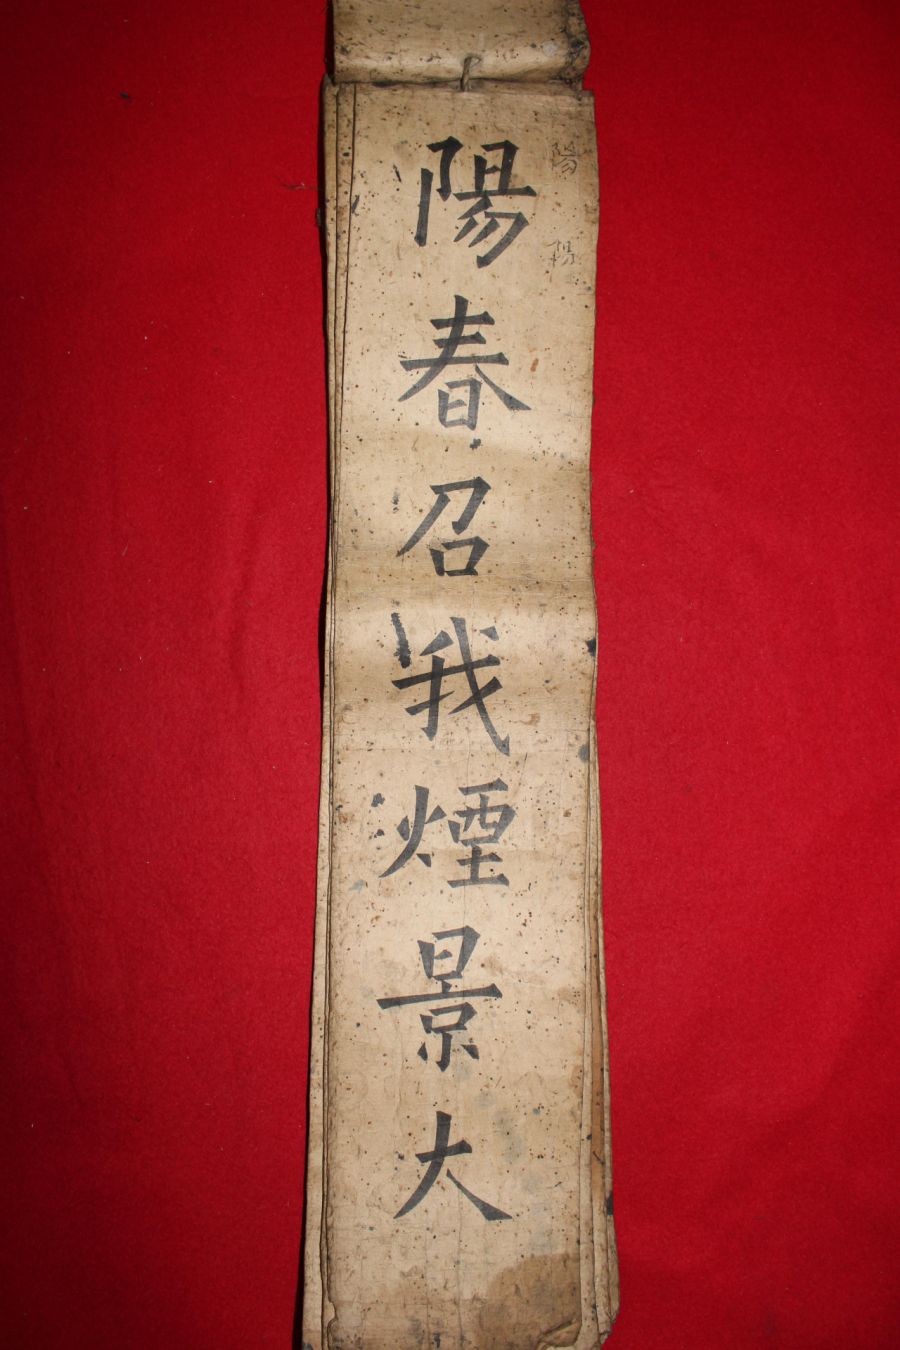 陽春召我煙景大
陽
陽